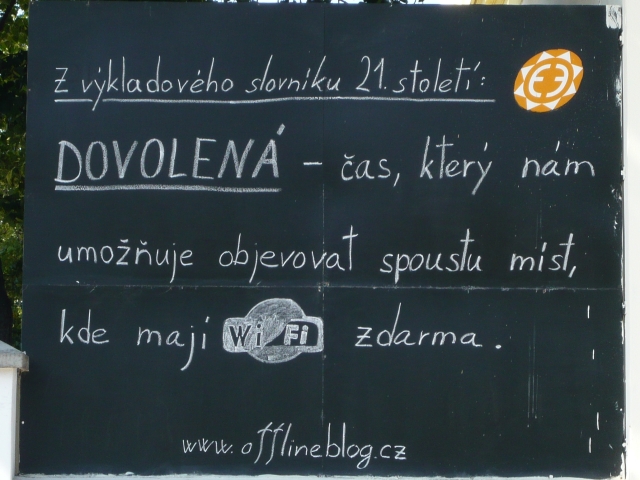 Z výkladového slovníku 21. století:
DOVOLENÁ – čas, který nám
umožňuje objevovat spoustu míst,
kde mají WiFi zdarma.
www.offlineblog.cz